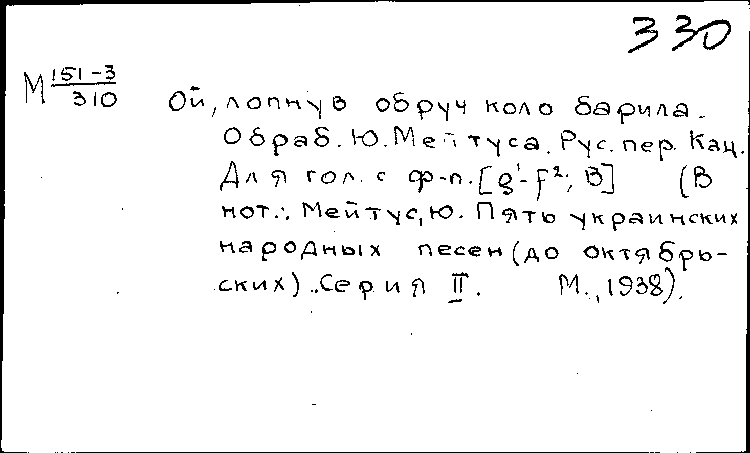 330
М 151-3/310
Ой, лопнув обруч коло барила.
Обраб. Ю. Мейтуса. Рус. пер. Кац.
Для гол. с ф-п. [g¹-f²; B] (В
нот.: Мейтус, Ю. Пять украинских
народных песен (до октябрь-
ских). Серия II. М., 1938).